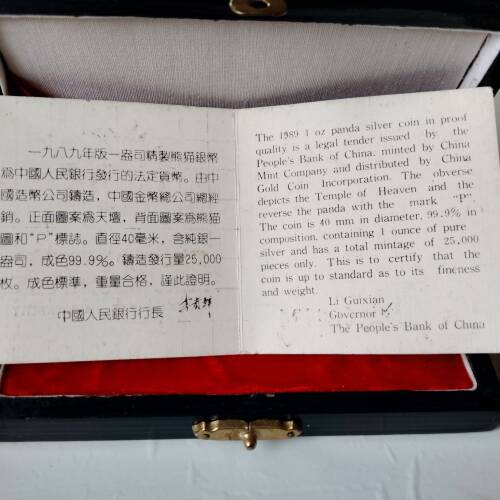 一九八九年版一盎司精製熊猫銀幣
爲中國人民銀行發行的法定貨幣。由中
國造幣公司鑄造，中國金幣總公司總經
銷。正面圖案爲天壇，背面圖案爲熊猫
圖和“P”標誌。直徑40毫米，含純銀一
盎司，成色99.9%。鑄造發行量25,000
枚。成色標準，重量合格，謹此證明。
中國人民銀行行長
The 1989 1 oz panda silver coin in proof
quality is a legal tender issued by the
People's Bank of China, minted by China
Mint Company and distributed by China
Gold Coin Incorporation. The obverse
depicts the Temple of Heaven and the
reverse the panda with the mark “P”.
The coin is 40 mm in diameter, 99.9% in
composition, containing 1 ounce of pure
silver and has a total mintage of 25,000
pieces only. This is to certify that the
coin is up to standard as to its fineness
and weight.
Li Guixian
Governor
The People's Bank of China